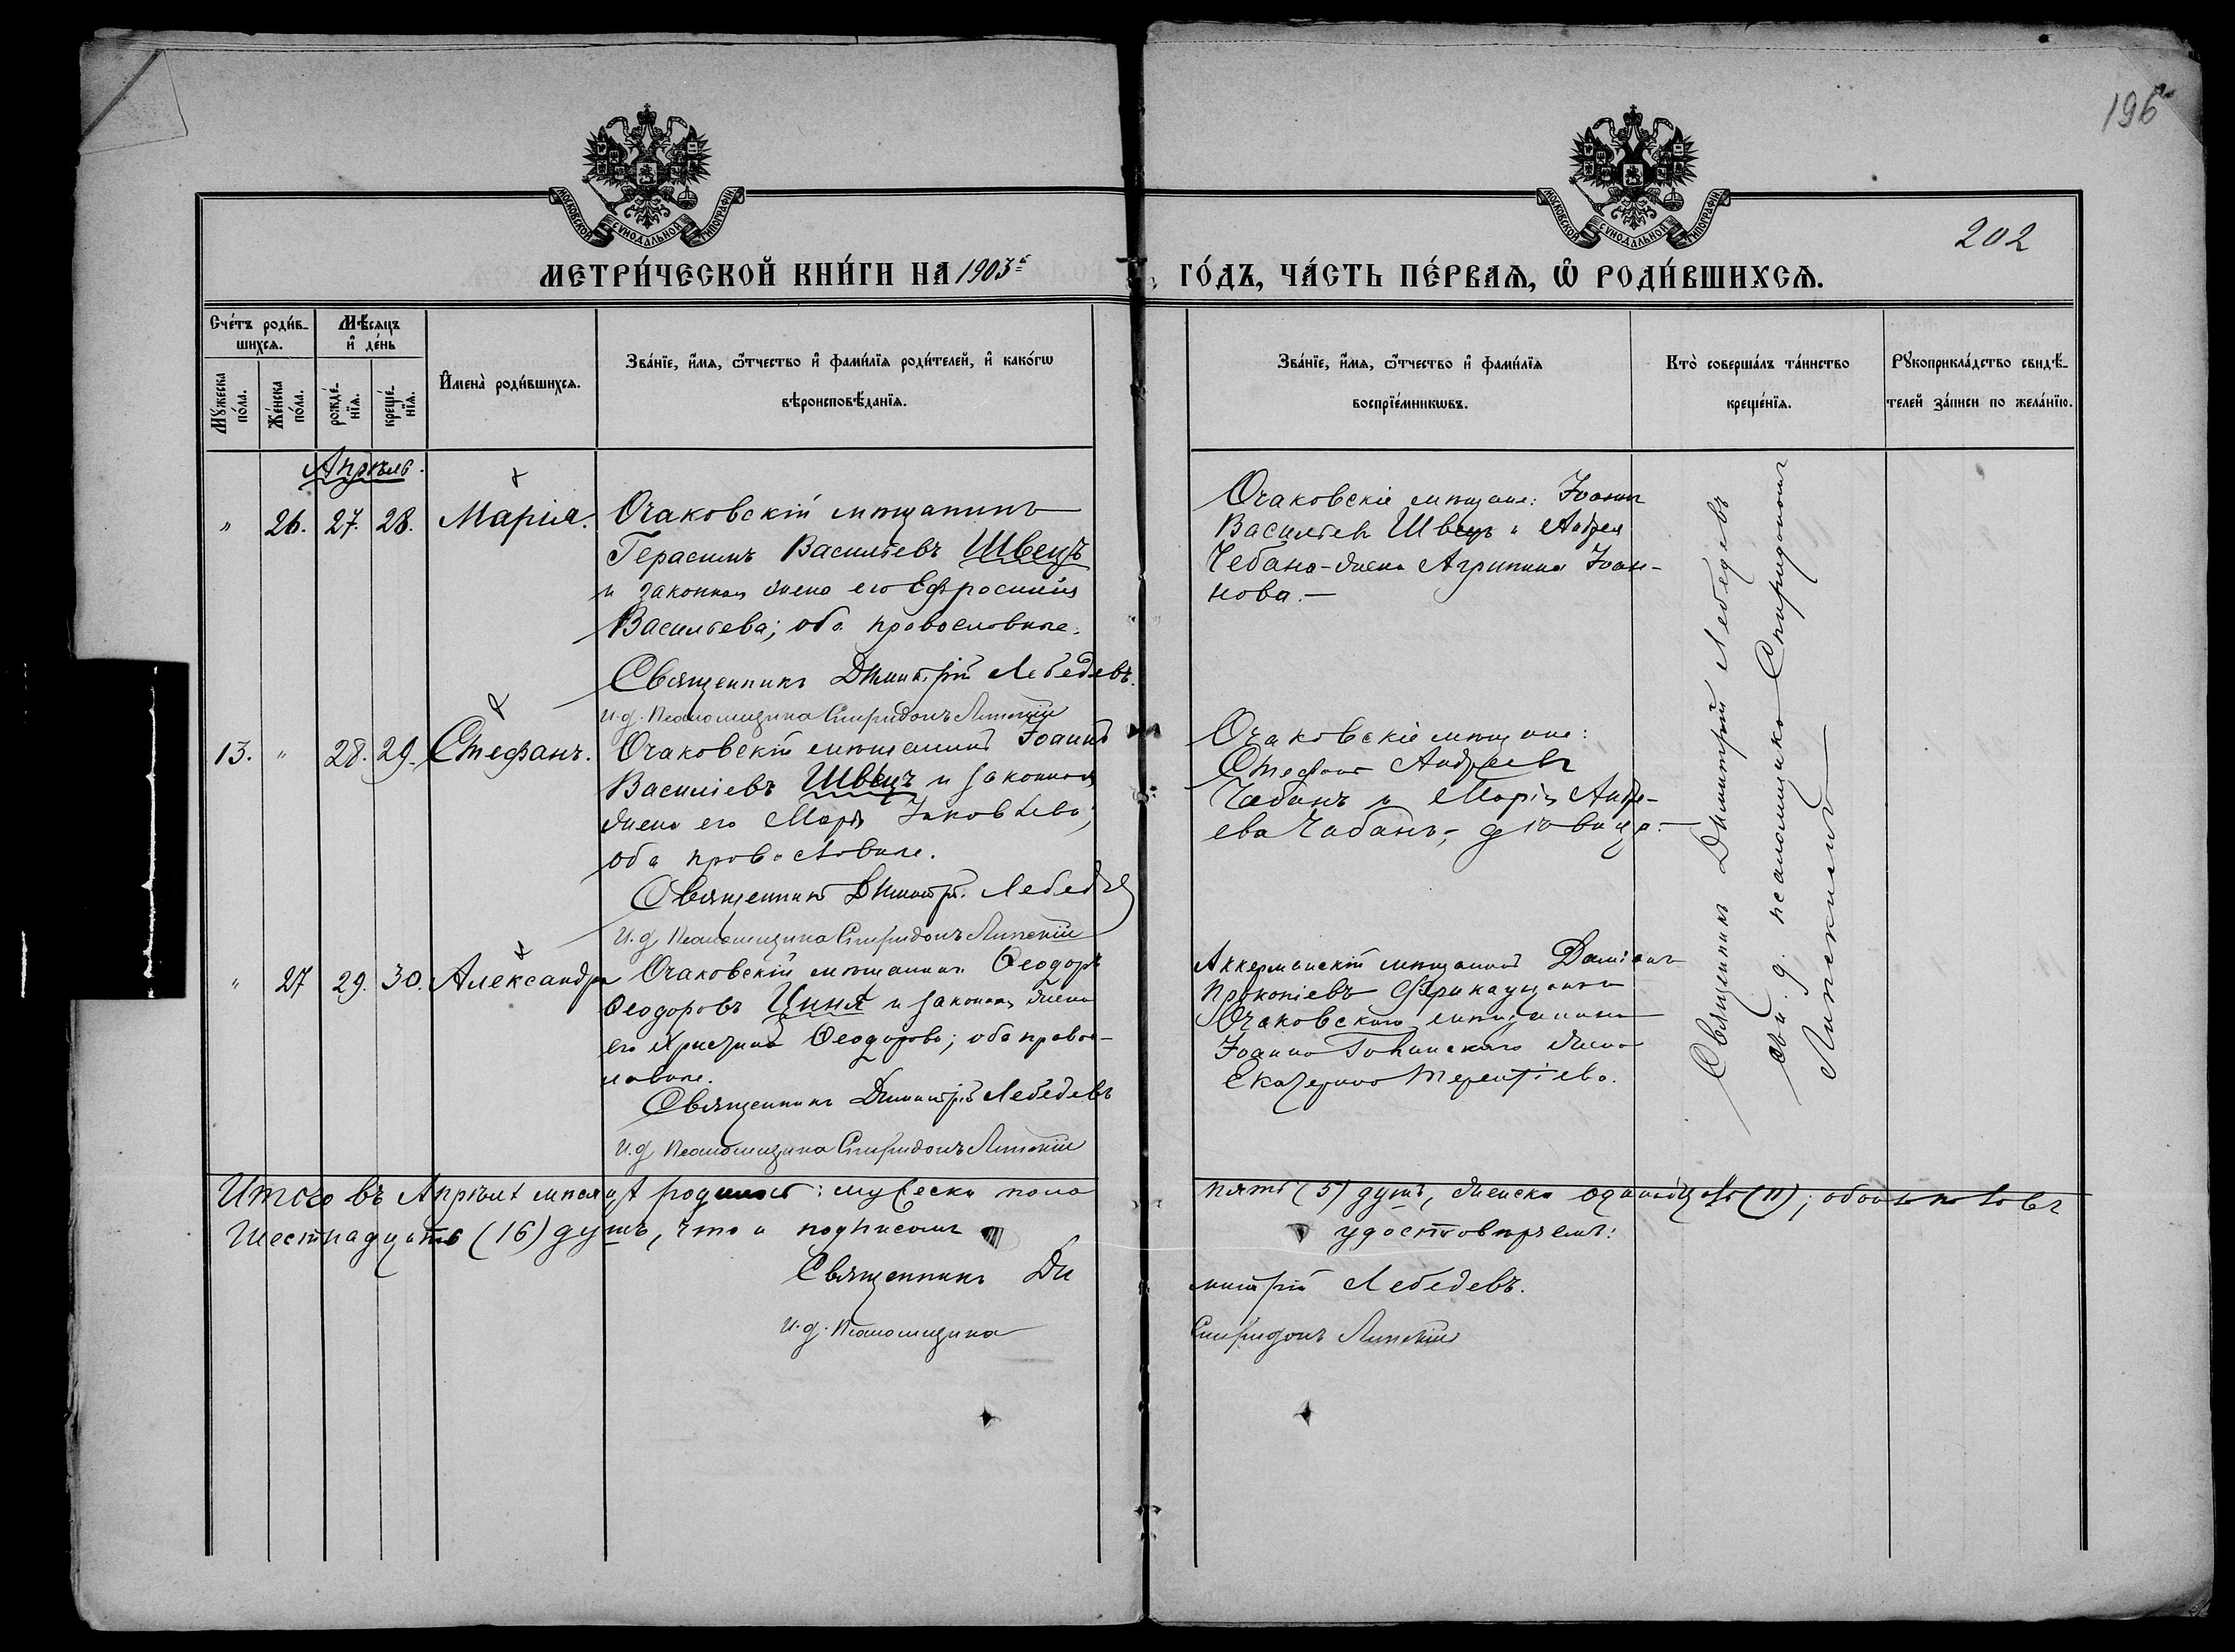 196
202
МОСКОВСКОЙ СѴНОДАЛЬНОЙ ТИПОГРАФІИ
МОСКОВСКОЙ СѴНОДАЛЬНОЙ ТИПОГРАФІИ
МЕТРИ́ЧЕСКОЙ КНИ́ГИ НА 1903й
ГО́ДЪ, ЧА́СТЬ ПЕ́РВАѦ, Ѿ РОДИ́ВШИХСѦ.
Сче́тъ роди́в-
шихсѧ.
Мѣ́сѧцъ
и҆ де́нь
Мꙋ́жеска
по́ла.
Же́нска
по́ла.
рожде́-
нїѧ.
креще́-
нїѧ.
И҆мена̀ роди́вшихсѧ.
Зва́нїе, и҆́мѧ, ѻ҆́тчество и҆ фами́лїѧ роди́телей, и҆ како́гѡ
вѣроисповѣ́данїѧ.
Зва́нїе, и҆́мѧ, ѻ҆́тчество и҆ фами́лїѧ
воспрїе́мникѡвъ.
Кто̀ соверша́лъ та́инство
креще́нїѧ.
Рꙋкоприкла́дство свидѣ́-
телей за́писи по жела́нїю.
Апрѣль.
" 26. 27. 28. Марія.
Очаковскій мѣщанинъ
Герасимъ Васильевъ Швецъ
и законная жена его Ефросинія
Васильева; оба православные.
Священникъ Димитрій Лебедевъ.
и. д. Псаломщика Спиридонъ Липскій
Очаковскіе мѣщане: Іоаннъ
Васильевъ Швецъ и Андрея
Чебана жена Агрипина Іоан-
нова.
13. " 28. 29. Стефанъ.
Очаковскій мѣщанинъ Іоаннъ
Василіевъ Швецъ и законная
жена его Марія Іаковлева;
оба православные.
Священникъ Димитрій Лебедевъ
И. д. Псаломщика Спиридонъ Липскій
Очаковскіе мѣщане:
Стефанъ Андреевъ
Чабанъ и Марія Андре-
ева Чабанъ, дѣвица.
" 27 29. 30. Александра
Очаковскій мѣщанинъ Ѳеодоръ
Ѳеодоровъ и законная жена
его Христина Ѳеодорова; оба правос-
лавные.
Священникъ Димитрій Лебедевъ
И. д. Псаломщика Спиридонъ Липскій
Аккерманскій мѣщанинъ Даміанъ
Прокопіевъ и
Очаковскаго мѣщанина
Іоанна жена
Екатерина Терентіева.
Священникъ Димитрій Лебедевъ
съ и. д. псаломщика Спиридономъ
Липскимъ
Итого въ Апрѣлѣ мѣсяцѣ родилось: мужеска пола
пять (5) душъ, женска одинадцать (11); обоего половъ
Шестнадцать (16) душъ, что и подписомъ
удостовѣряемъ:
Священникъ Ди
митрій Лебедевъ.
И. д. Псаломщика
Спиридонъ Липскій